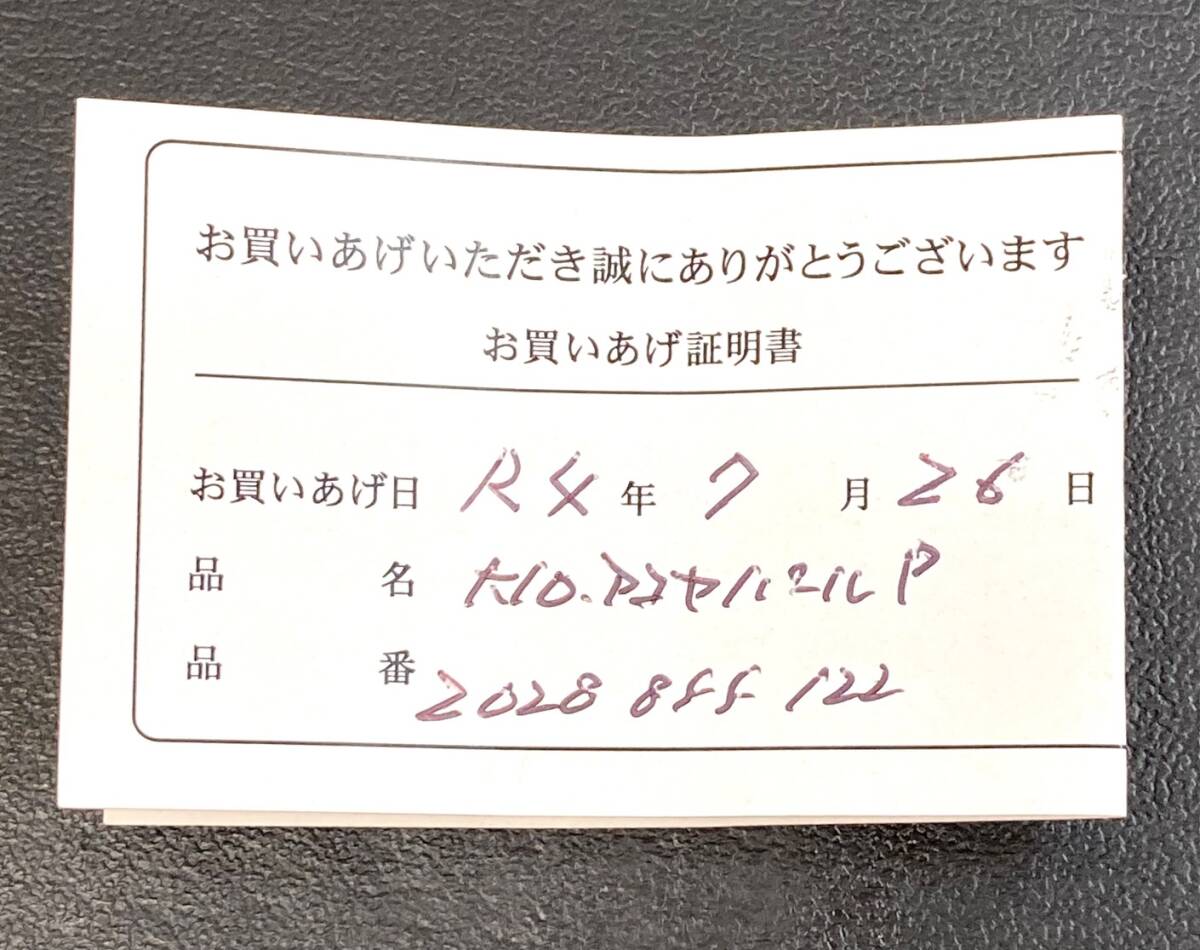 お買いあげいただき誠にありがとうございます
お買いあげ証明書
お買いあげ日 R4年 7月 26日
品名 K10.アコヤパールP
品番 2028 855 122